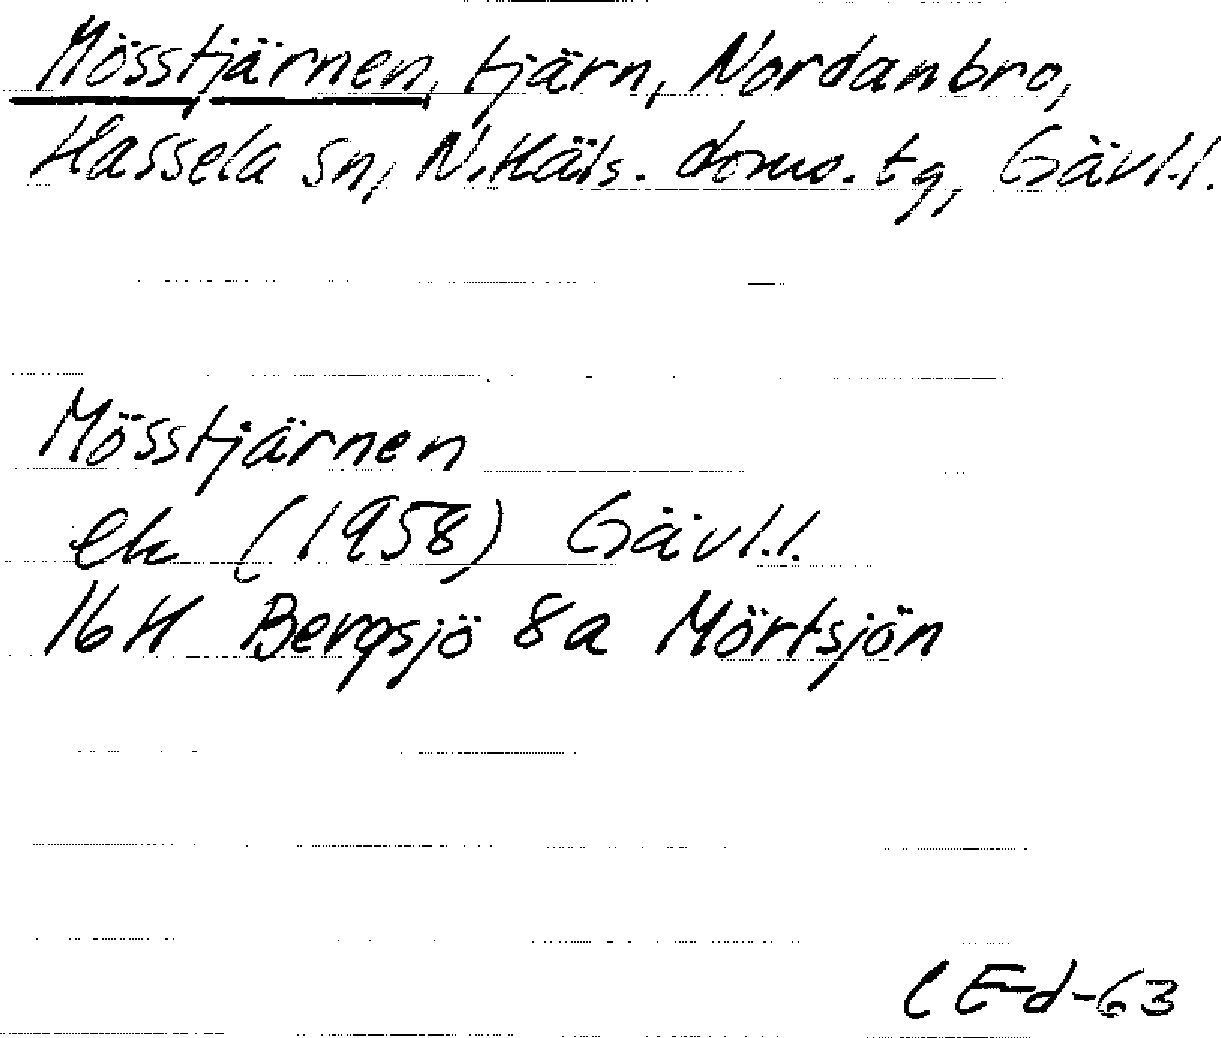 Mösstjärnen, tjärn, Nordanbro,
Hassela sn, N.Häls. doms. tg, Gävl.l.
Mösstjärnen
ek (1958) Gävl.l.
16H Bergsjö 8a Mörtsjön
CE-d-63